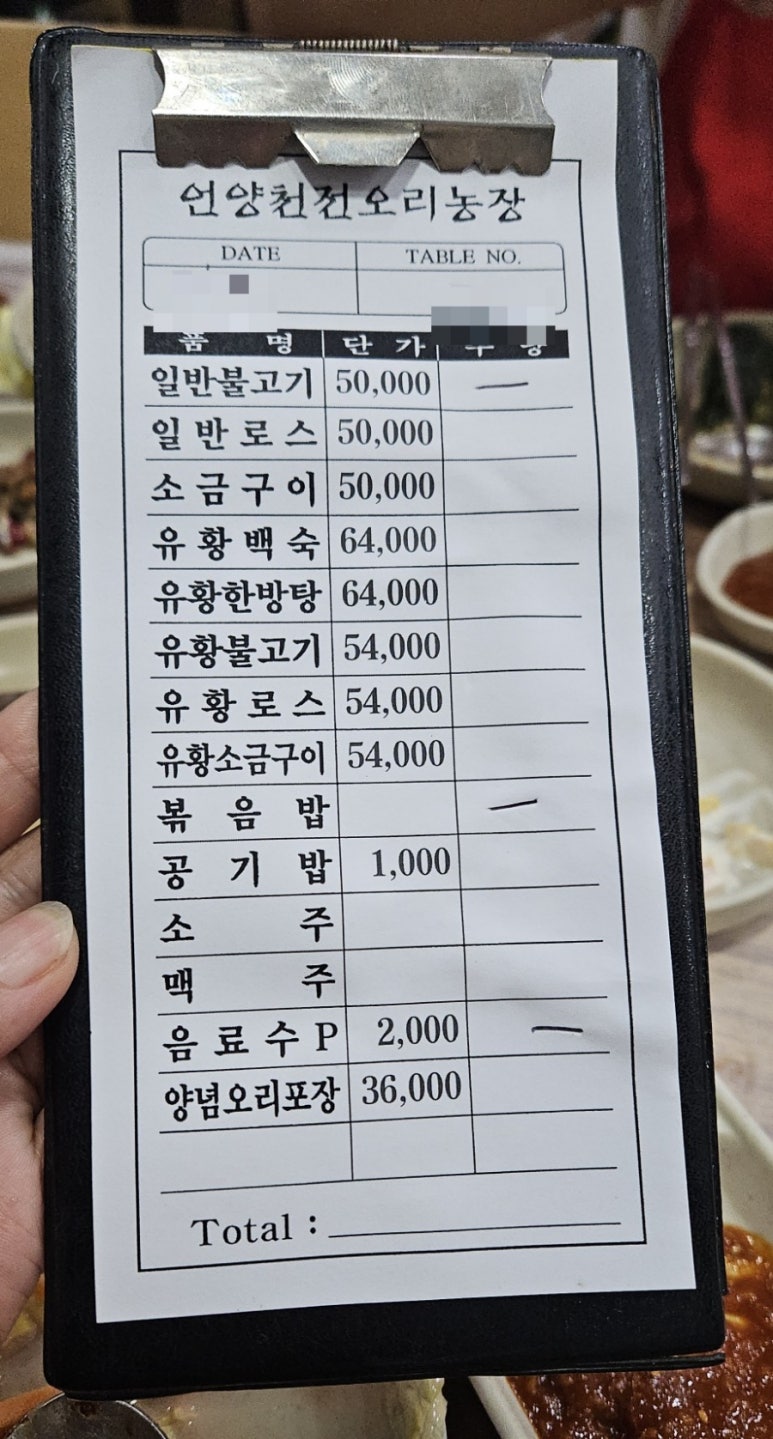 언양천전오리농장
DATE TABLE NO.
품 명 단 가 수 량
일반불고기 50,000 一
일반로스 50,000
소금구이 50,000
유황백숙 64,000
유황한방탕 64,000
유황불고기 54,000
유황로스 54,000
유황소금구이 54,000
볶음밥 一
공기밥 1,000
소주
맥주
음료수 P 2,000 一
양념오리포장 36,000
Total :